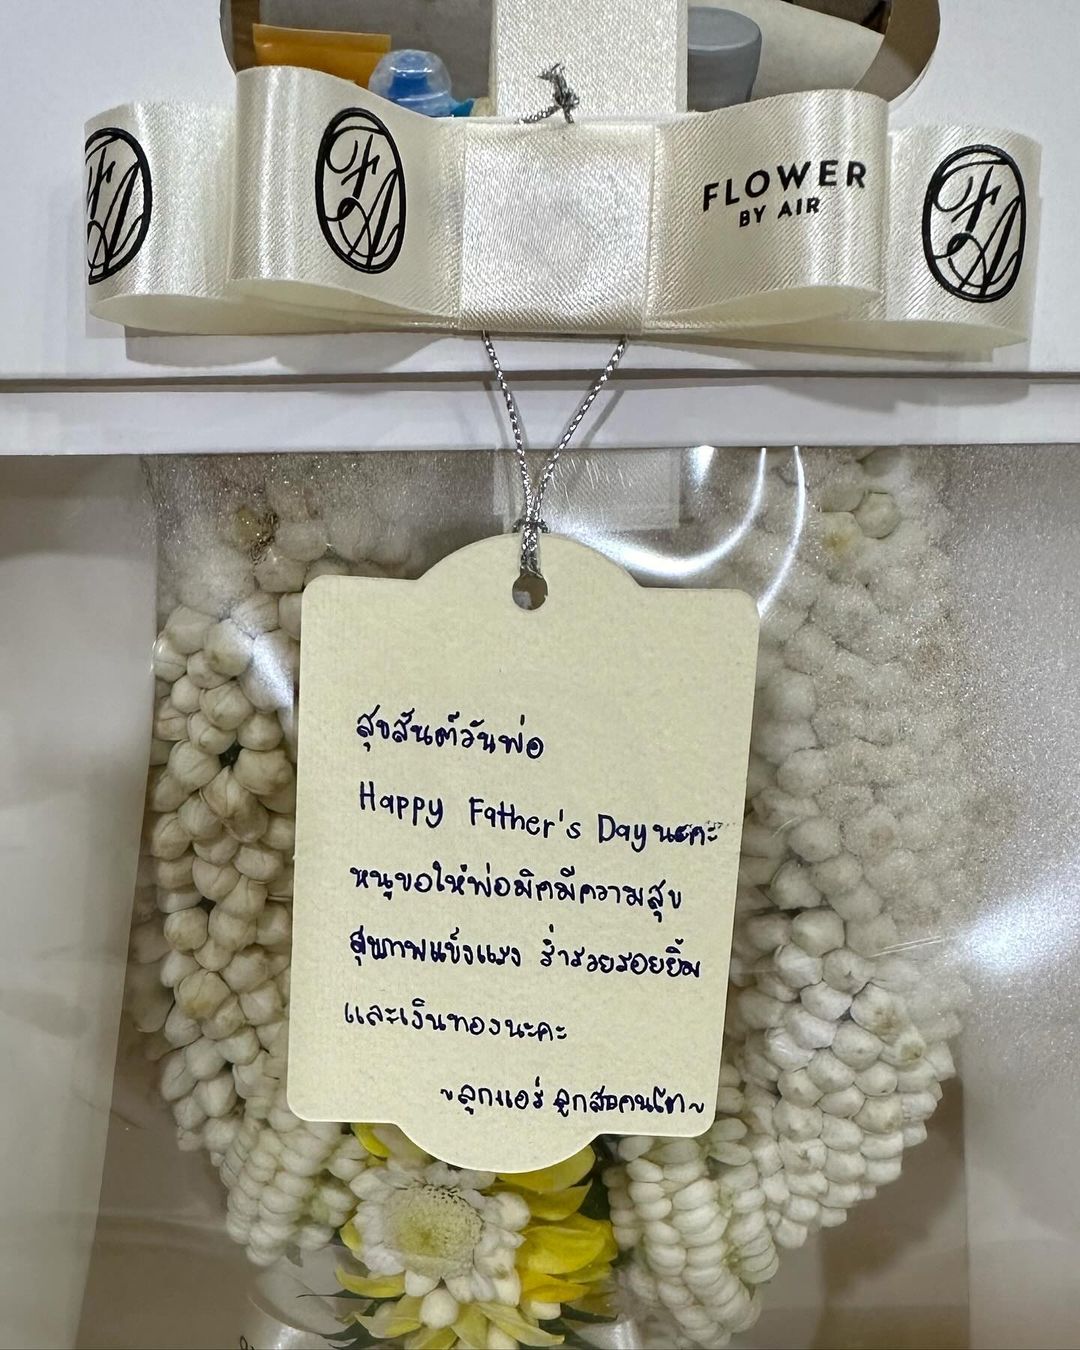 FA
FA
FLOWER
BY AIR
FA
สุขสันต์วันพ่อ
Happy Father's Day นะคะ
หนูขอให้พ่อมิคมีความสุข
สุขภาพแข็งแรง ร่ำรวยรอยยิ้ม
และเงินทองนะคะ
~ลูกแอร์ ลูกสาวคนโต~